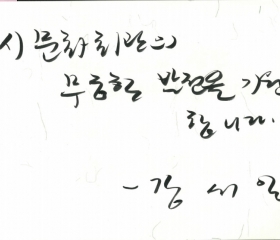 시 문화회관의
무궁한 발전을 기원
합니다.
- 강 서 일